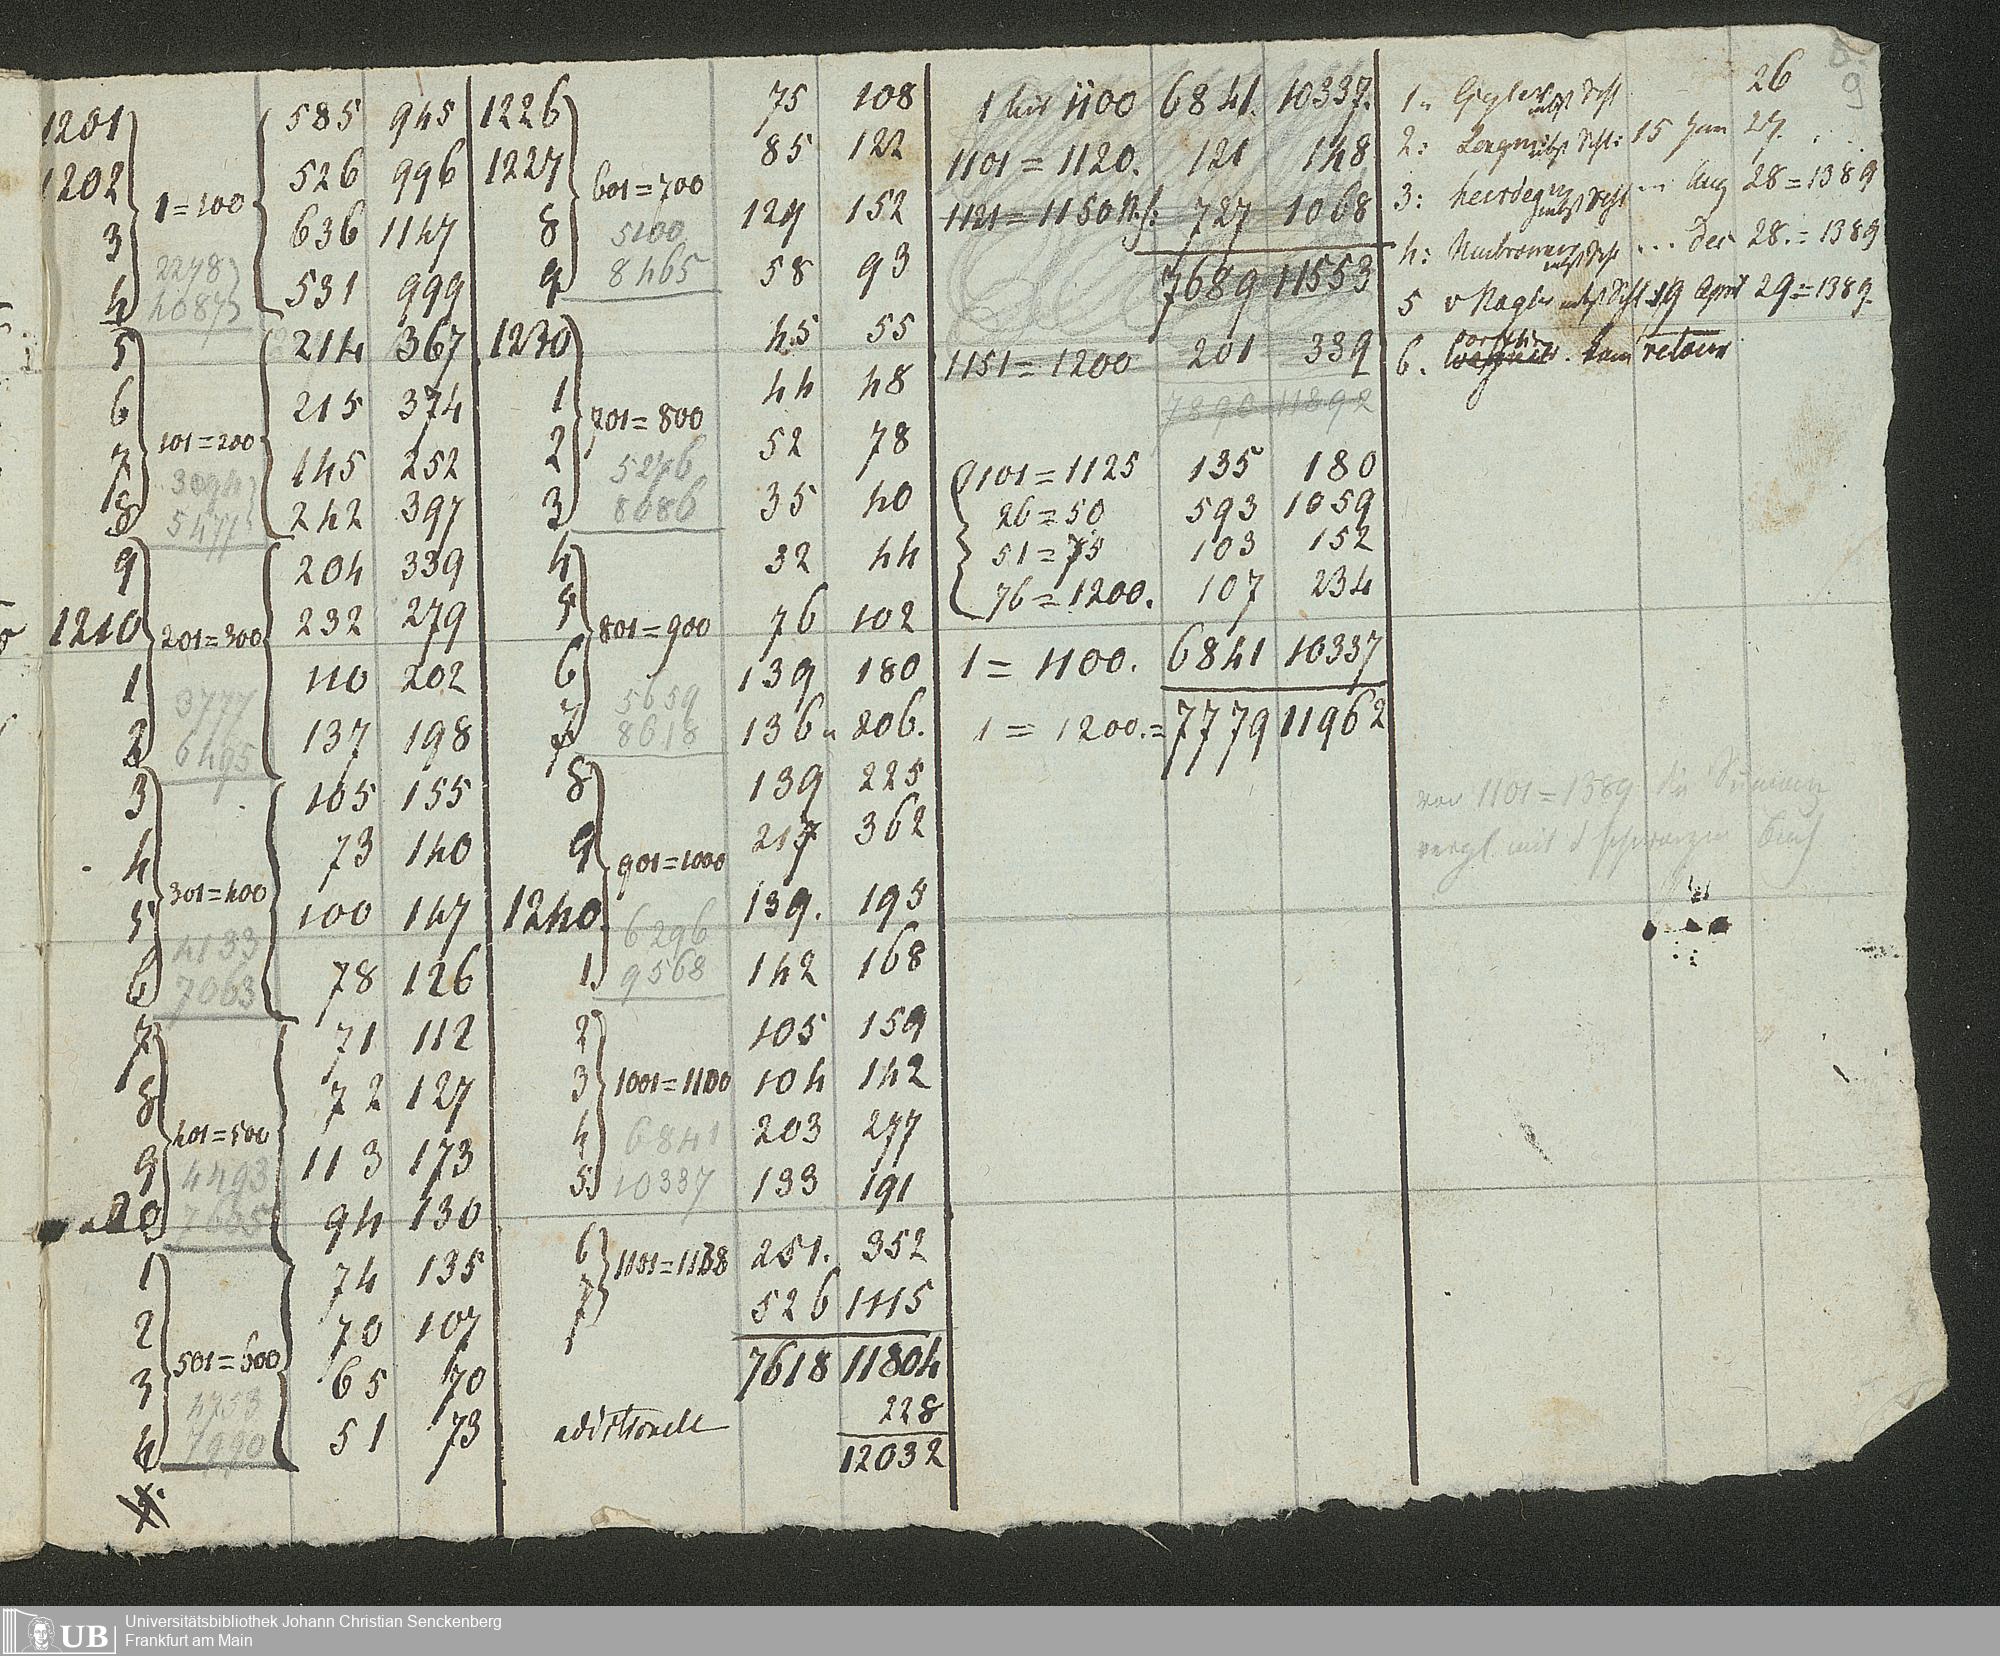 1201 585 945
1202 526 996
1=100
3 636 1147
2278
4 531 999
4087
5 214 367
6 215 374
101=200
7 145 252
3094
8 242 397
5477
9 204 339
1210 201=300 232 279
1 110 202
3777
2 137 198
6495
3 105 155
4 73 140
301=400
5 100 147
4133
6 78 126
7063
7 71 112
8 72 127
401=500
9 113 173
4493
20 94 130
7605
1 74 135
2 70 107
501=600
3 65 70
4753
4 51 73
7990
1226 75 108
1227 85 122
601=700
8 129 152
5100
9 58 93
8465
1230 45 55
1 44 48
701=800
2 52 78
5276
3 35 40
8686
4 32 44
5 76 102
801=900
6 139 180
5659
7 136 206.
8618
8 139 225
9 217 362
901=1000
1240. 139. 195
6296
1. 142 168
9568
2 105 159
3 1001=1100 104 142
4 203 277
6841
5 133 191
10337
6 251. 352
1101=1168
7 526 1115
7618 11804
228
12032
1 bis 1100 6841. 10337.
1101=1120. 121 148
1121=1150 727 1068
7689 11553
1151=1200 201 339
7890 11892
1101=1125 135 180
26=50 593 1059
51=75 103 152
76=1200. 107 234
1=1100. 6841 10337
1=1200.= 7779 11962
1. 26
2: 15 Jan 27.
3: Aug 28=1389
4: Dec 28.=1389
5 v 19 April 29=1389.
6. retour
von 1101=1389 die
vergl. mit d schwarzen Buch
9
UB
Universitätsbibliothek Johann Christian Senckenberg
Frankfurt am Main